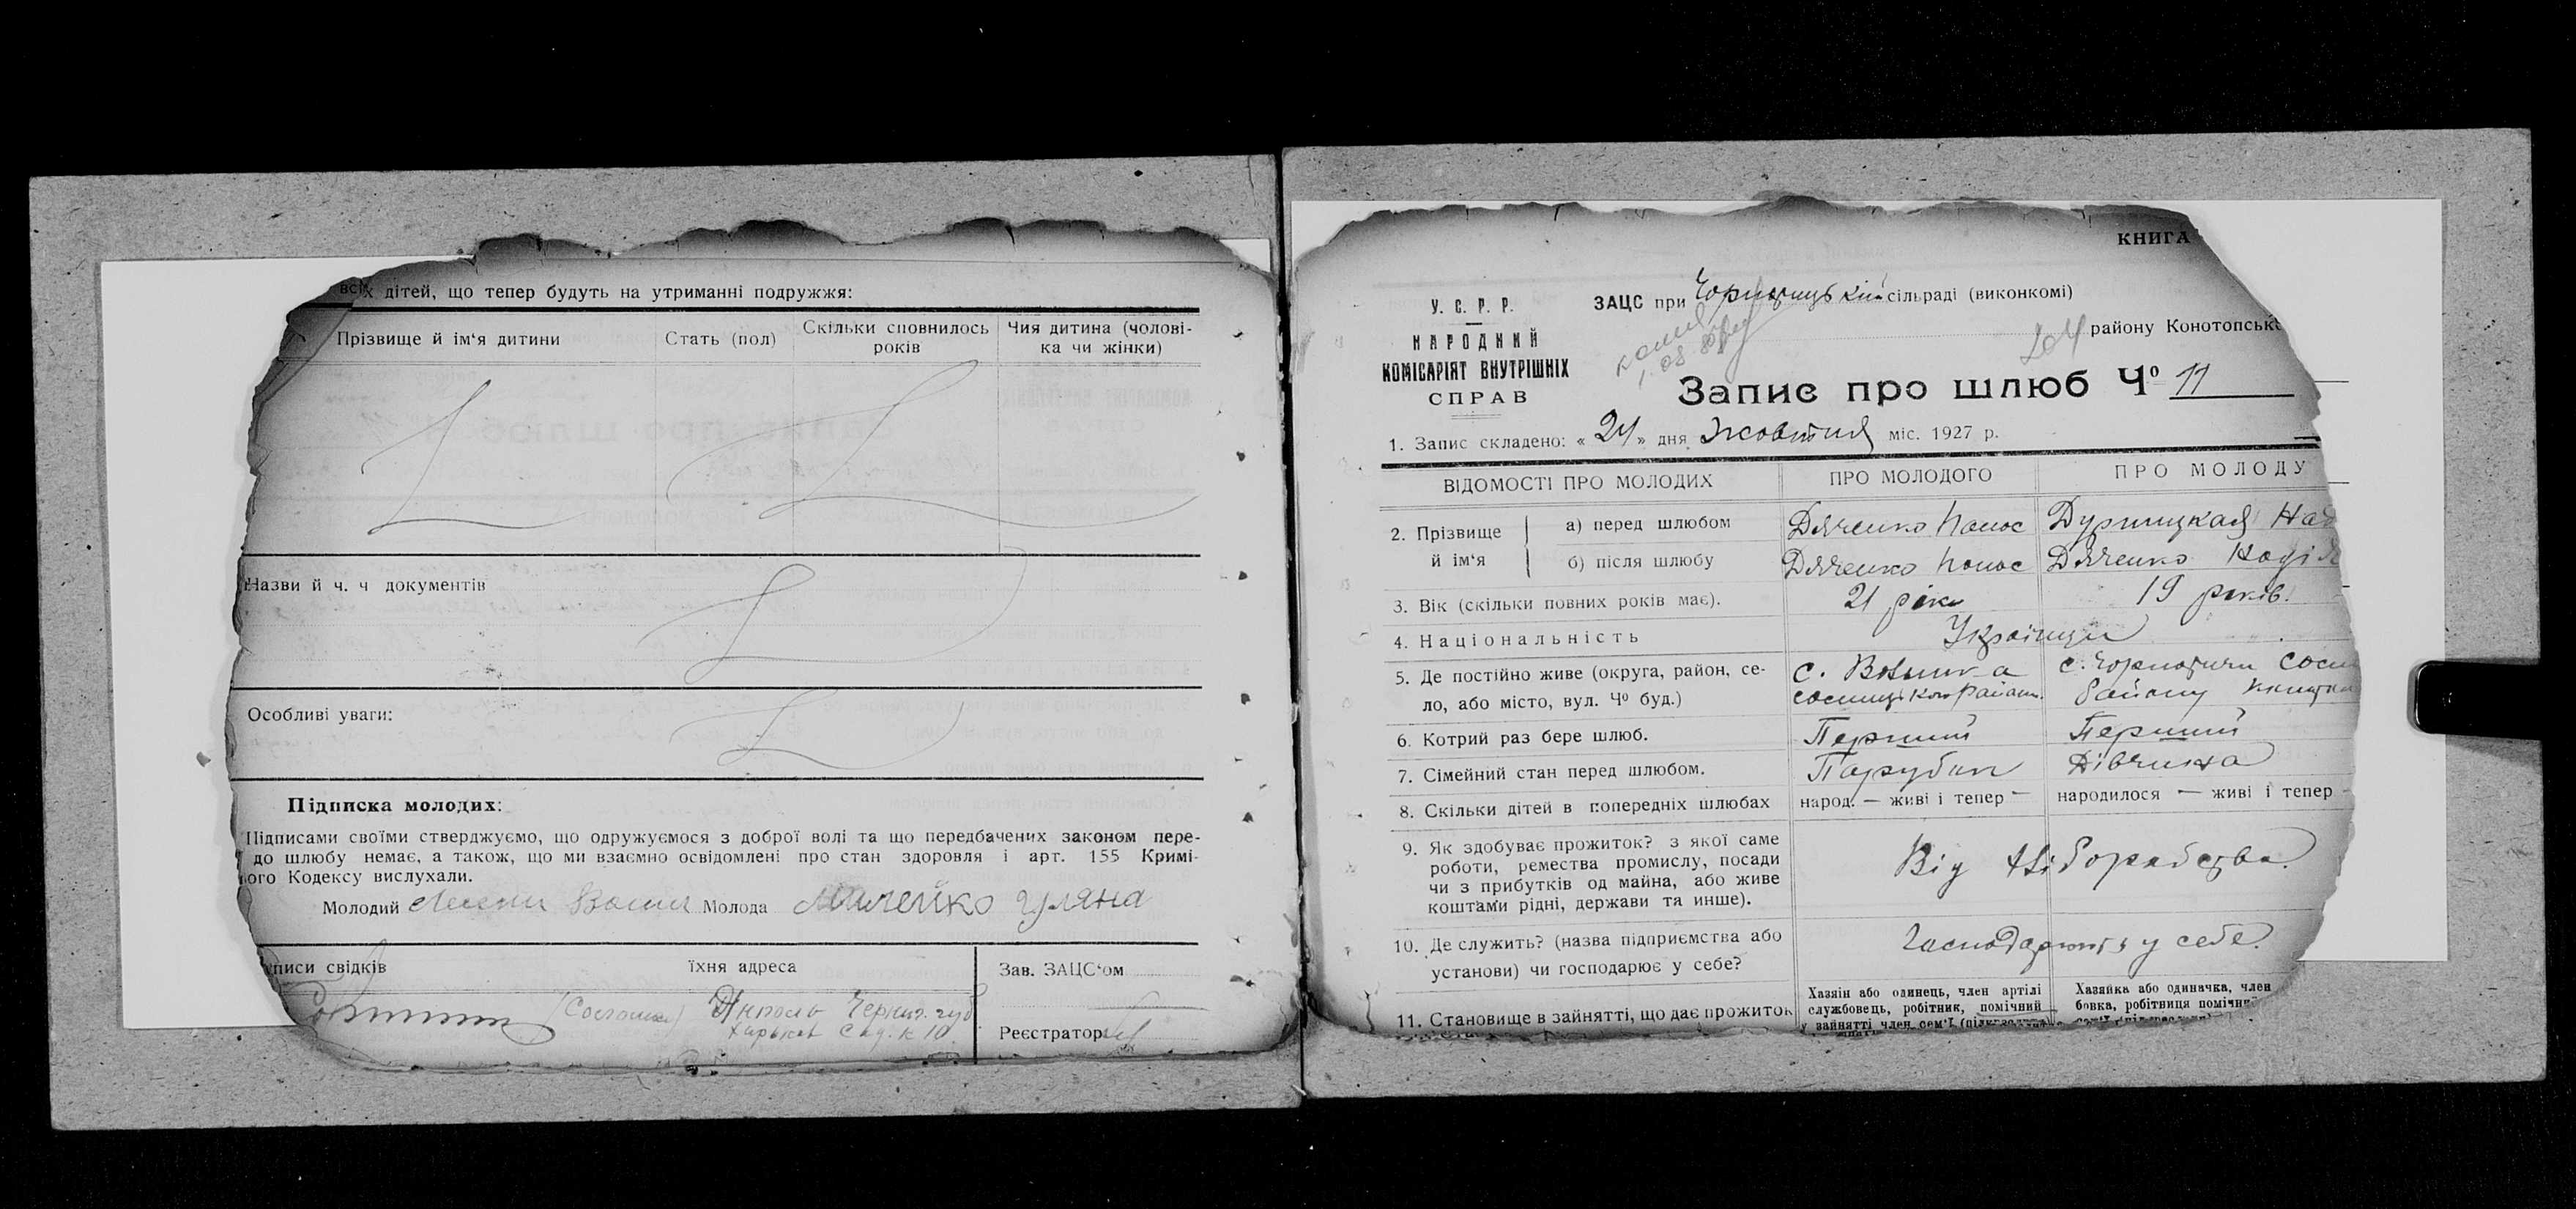 х дітей, що тепер будуть на утриманні подружжя:
Прізвище й ім'я дитини
Стать (пол)
Скільки сповнилось років
Чия дитина (чолові-
ка чи жінки)
Назви й ч. ч документів
Особливі уваги:
Підписка молодих:
Підписами своїми стверджуємо, що одружуємося з доброї волі та що передбачених законом пере-
до шлюбу немає, а також, що ми взаємно освідомлені про стан здоров'я і арт. 155 Кримі-
ого Кодексу вислухали.
Молодий Молода Милейко Уляна
писи свідків
їхня адреса
Зав. ЗАЦС'ом
Черниг. губ
Харьков
Реєстратор
КНИГА
У. С. Р. Р.
НАРОДНИЙ
КОМІСАРІЯТ ВНУТРІШНІХ
СПРАВ
ЗАЦС при сільраді (виконкомі)
району Конотопсько
Запис про шлюб Чо 11
1. Запис складено: « 24 » дня Жовтня міс. 1927 р.
ВІДОМОСТІ ПРО МОЛОДИХ
ПРО МОЛОДОГО
ПРО МОЛОДУ
2. Прізвище й ім'я
а) перед шлюбом
Дяченко Панас
Дурницкая Над
б) після шлюбу
Дяченко Панас
Дяченко Надія
3. Вік (скільки повних років має).
21 рік
19 років.
4. Національність
Українци
5. Де постійно живе (округа, район, се-
ло, або місто, вул. Чо буд.)
с.
с. Чорнотичи Сосн
району
6. Котрий раз бере шлюб.
Перший
Перший
7. Сімейний стан перед шлюбом.
Парубок
Дівчина
8. Скільки дітей в попередніх шлюбах
народ. — живі і тепер —
народилося — живі і тепер -
9. Як здобуває прожиток? з якої саме
роботи, ремества промислу, посади
чи з прибутків од майна, або живе
коштами рідні, держави та инше).
Від хліборобства.
10. Де служить? (назва підприємства або
установи) чи господарює у себе?
Господарюють у себе.
11. Становище в зайнятті, що дає прожиток
Хазяїн або одинець, член артілі
службовець, робітник, помічний
у зайнятті член сем'ї
Хазяйка або одиначка, член
бовка, робітниця помічн